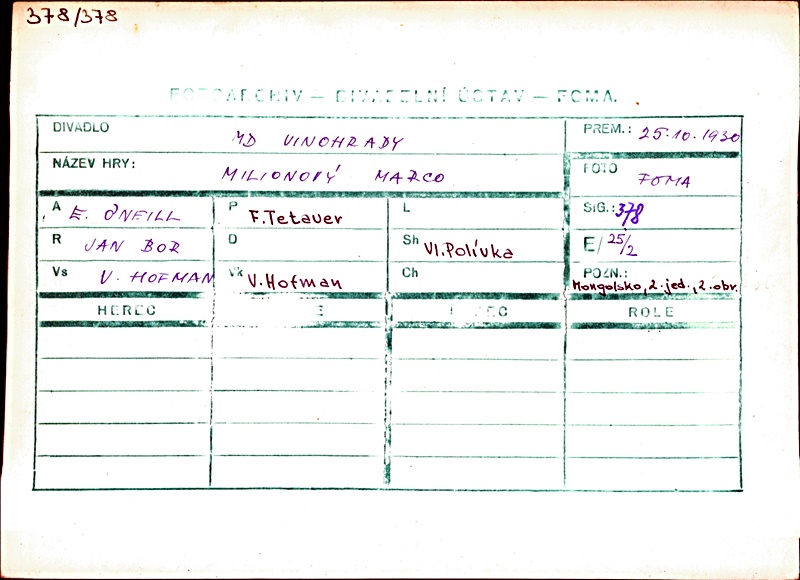 378/378
FOTOARCHIV — DIVADELNÍ ÚSTAV — FOMA.
DIVADLO MD VINOHRADY PREM.: 25.10.1930
NÁZEV HRY: MILIONOVÝ MARCO FOTO FOMA
A E. O'NEILL P F. Tetauer L SIG.: 378
R JAN BOR D Sh Vl. Polívka E/ 25/2
Vs V. HOFMAN Vk V. Hofman Ch POZN.: Mongolsko, 2. jed., 2. obr.
HEREC ROLE HEREC ROLE